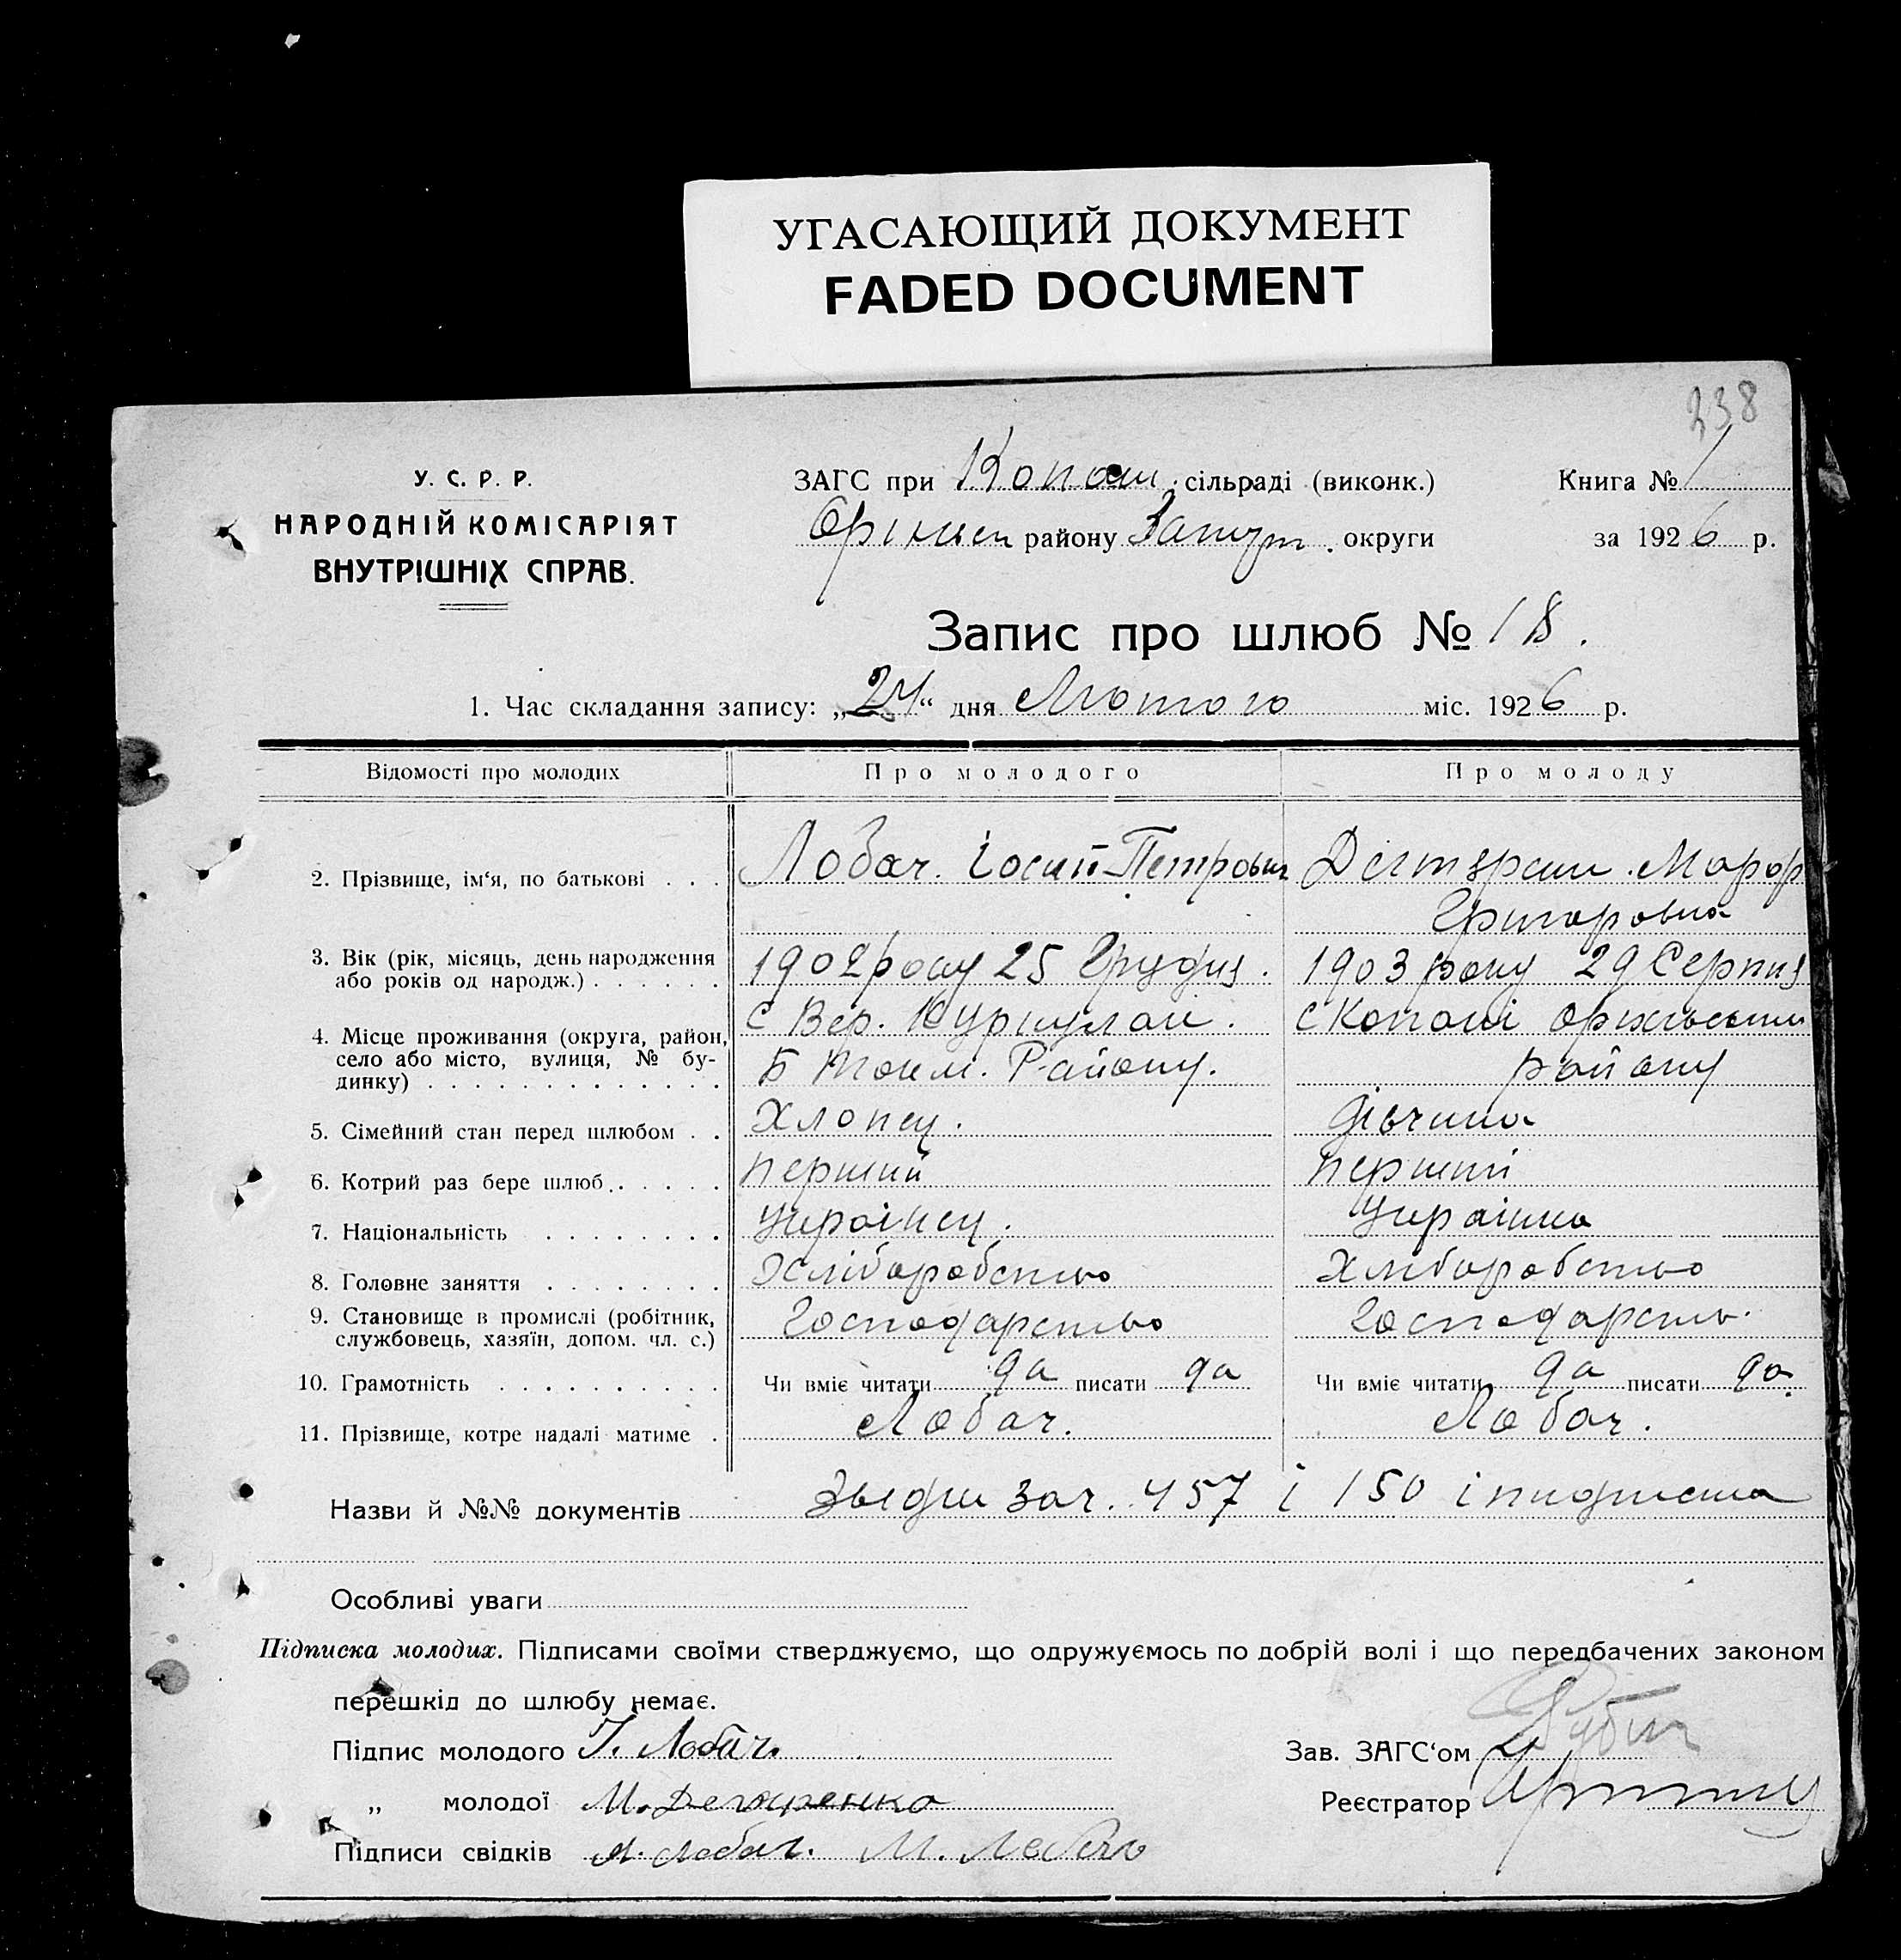 УГАСАЮЩИЙ ДОКУМЕНТ
FADED DOCUMENT
238
У. С. Р. Р.
НАРОДНІЙ КОМІСАРІЯТ
ВНУТРІШНІХ СПРАВ.
ЗАГС при Копан. сільраді (виконк.)
району Запор. округи
Книга № 1
за 1926 р.
Запис про шлюб № 18.
1. Час складання запису: „24“ дня Лютого міс. 1926 р.
Відомості про молодих
Про молодого
Про молоду
2. Прізвище, ім‘я, по батькові . . .
Лобач. Іосип Петрович
Григоровна
3. Вік (рік, місяць, день народження або років од народж.) . . . . . .
1902 року 25 Грудня.
1903 року 29 Серпня
4. Місце проживання (округа, район, село або місто, вулиця, № будинку) . . . . . . . . . . . . .
с Вер. Куркулак.
Б Токм. Району.
с Копані Оріхівськ
району
5. Сімейний стан перед шлюбом . .
Хлопец.
дівчина
6. Котрий раз бере шлюб . . . . .
перший
перший
7. Національність . . . . . . . .
Украінец.
Украінка
8. Головне заняття . . . . . . . .
Хліборобство
Хліборобство
9. Становище в промислі (робітник, службовець, хазяїн, допом. чл. с.)
Господарство
Господарств.
10. Грамотність . . . . . . . . . .
Чи вміє читати да писати да
Чи вміє читати да писати да.
11. Прізвище, котре надалі матиме .
Лобач.
Лобач.
Назви й №№ документів зач. 457 і 150 і
Особливі уваги
Підписка молодих. Підписами своїми стверджуємо, що одружуємось по добрій волі і що передбачених законом
перешкід до шлюбу немає.
Підпис молодого І. Лобач.
„ молодої М. Дегтяренко
Підписи свідків Лобач. М. Лобач
Зав. ЗАГС‘ом
Реєстратор